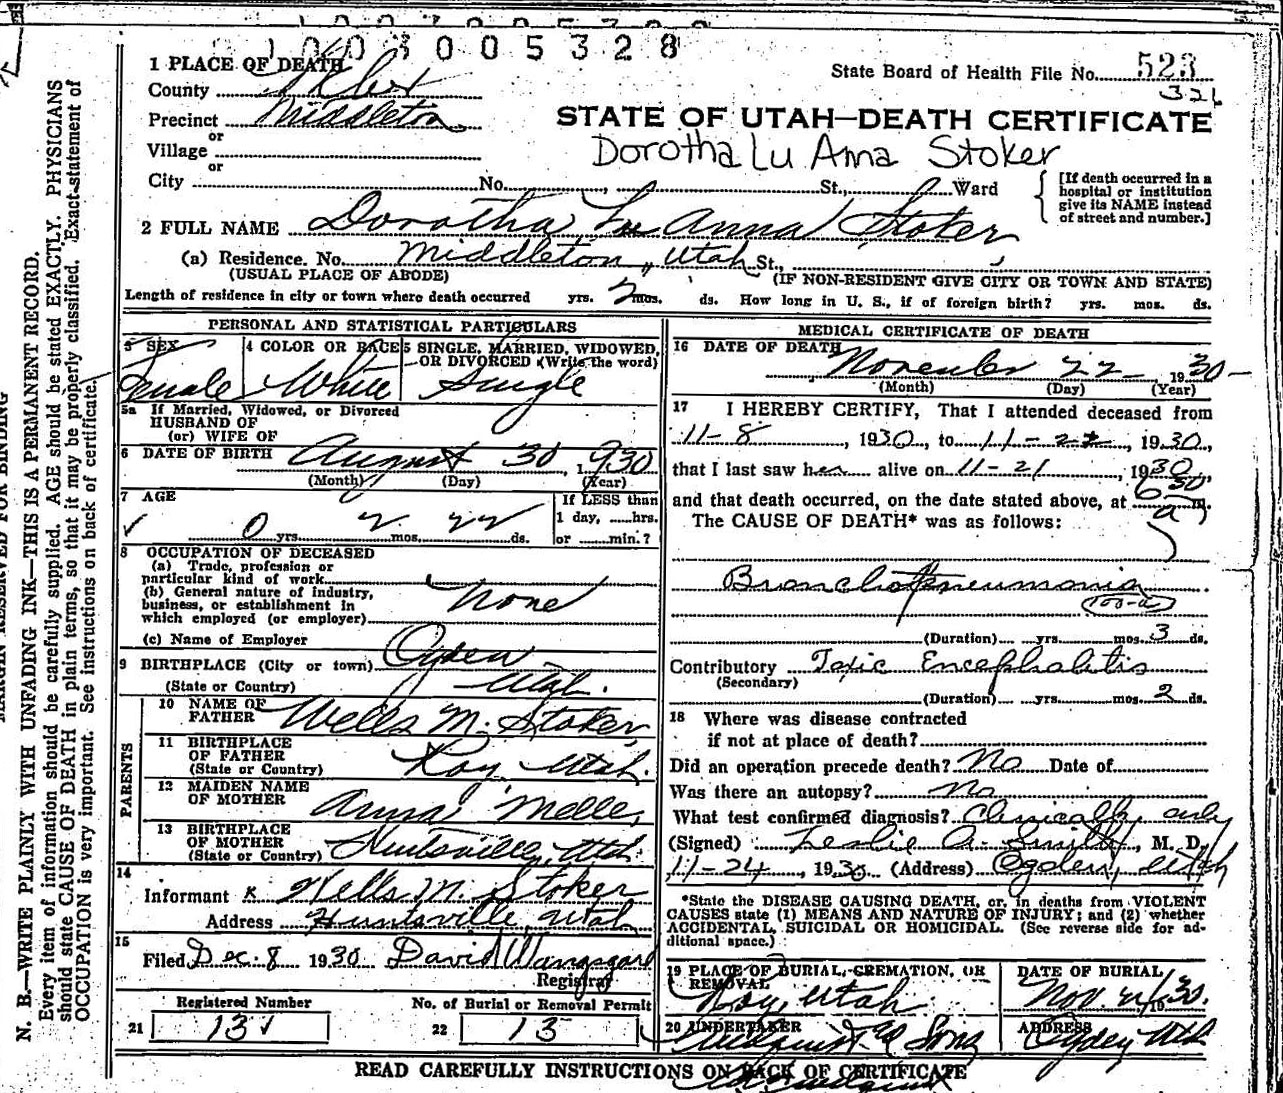 1003005328
1 PLACE OF DEATH
State Board of Health File No. 523
326
County
Precinct Middleton
or
Village
or
City No. , St., Ward
STATE OF UTAH—DEATH CERTIFICATE
Dorotha Lu Anna Stoker
[If death occurred in a hospital or institution give its NAME instead of street and number.]
2 FULL NAME Dorotha Lu Anna Stoker
(a) Residence. No. Middleton, Utah St.,
(USUAL PLACE OF ABODE) (IF NON-RESIDENT GIVE CITY OR TOWN AND STATE)
Length of residence in city or town where death occurred yrs. 2 mos. ds. How long in U. S., if of foreign birth? yrs. mos. ds.
PERSONAL AND STATISTICAL PARTICULARS
3 SEX
Female
4 COLOR OR RACE
White
5 SINGLE, MARRIED, WIDOWED,
OR DIVORCED (Write the word)
Single
5a If Married, Widowed, or Divorced
HUSBAND OF
(or) WIFE OF
6 DATE OF BIRTH August 30 1930
(Month) (Day) (Year)
7 AGE
0 yrs. 2 mos. 22 ds.
If LESS than
1 day, ......hrs.
or ......min.?
8 OCCUPATION OF DECEASED
(a) Trade, profession or
particular kind of work
(b) General nature of industry,
business, or establishment in
which employed (or employer)
None
(c) Name of Employer
9 BIRTHPLACE (City or town) Ogden
(State or Country) Utah.
PARENTS
10 NAME OF
FATHER Wells M. Stoker
11 BIRTHPLACE
OF FATHER
(State or Country) Roy Utah.
12 MAIDEN NAME
OF MOTHER Anna Melle
13 BIRTHPLACE
OF MOTHER
(State or Country) Huntsville, Utah
14
Informant Wells M. Stoker
Address Huntsville, Utah
15
Filed Dec. 8 1930 David Wangsgard
Registrar
Registered Number
21 13
No. of Burial or Removal Permit
22 13
MEDICAL CERTIFICATE OF DEATH
16 DATE OF DEATH
November 22 1930
(Month) (Day) (Year)
17 I HEREBY CERTIFY, That I attended deceased from
11-8, 1930, to 11-22, 1930,
that I last saw her alive on 11-21, 1930,
and that death occurred, on the date stated above, at 6 50 a m.
The CAUSE OF DEATH* was as follows:
Bronchopneumonia
100-a
(Duration) yrs. mos. 3 ds.
Contributory Toxic Encephalitis
(Secondary)
(Duration) yrs. mos. 2 ds.
18 Where was disease contracted
if not at place of death?
Did an operation precede death? No Date of
Was there an autopsy? No
What test confirmed diagnosis? Clinically only
(Signed) Leslie A. Smith, M. D.
11-24, 1930 (Address) Ogden, Utah
*State the DISEASE CAUSING DEATH, or, in deaths from VIOLENT
CAUSES state (1) MEANS AND NATURE OF INJURY; and (2) whether
ACCIDENTAL, SUICIDAL OR HOMICIDAL. (See reverse side for ad-
ditional space.)
19 PLACE OF BURIAL, CREMATION, OR
REMOVAL
Roy, Utah
DATE OF BURIAL
Nov. 24, 1930.
20 UNDERTAKER
Lindquist & Sons
ADDRESS
Ogden Utah
READ CAREFULLY INSTRUCTIONS ON BACK OF CERTIFICATE
MARGIN RESERVED FOR BINDING
N. B.—WRITE PLAINLY WITH UNFADING INK—THIS IS A PERMANENT RECORD.
Every item of information should be carefully supplied. AGE should be stated EXACTLY. PHYSICIANS
should state CAUSE OF DEATH in plain terms, so that it may be properly classified. Exact statement of
OCCUPATION is very important. See instructions on back of certificate.